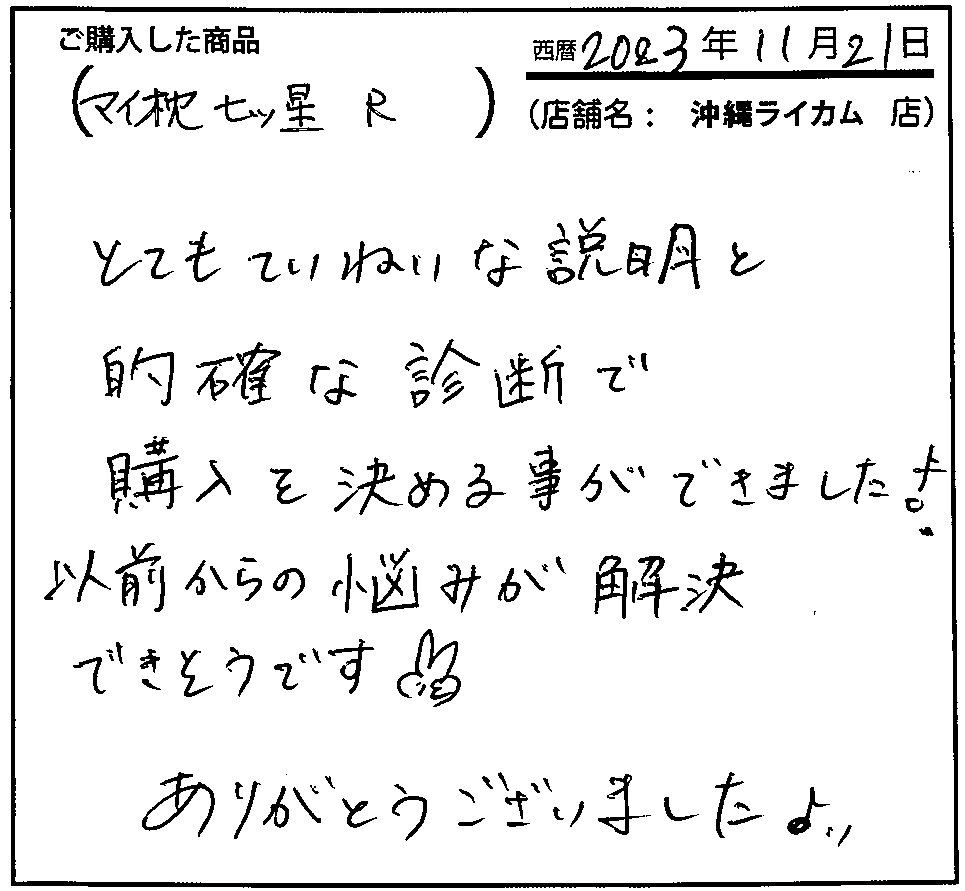 ご購入した商品
(マイ枕 七ッ星 R )
西暦2023年11月21日
(店舗名: 沖縄ライカム 店)
とてもていねいな説明と
的確な診断で
購入を決める事ができました!
以前からの悩みが解決
できそうです✌
ありがとうございました♪〃